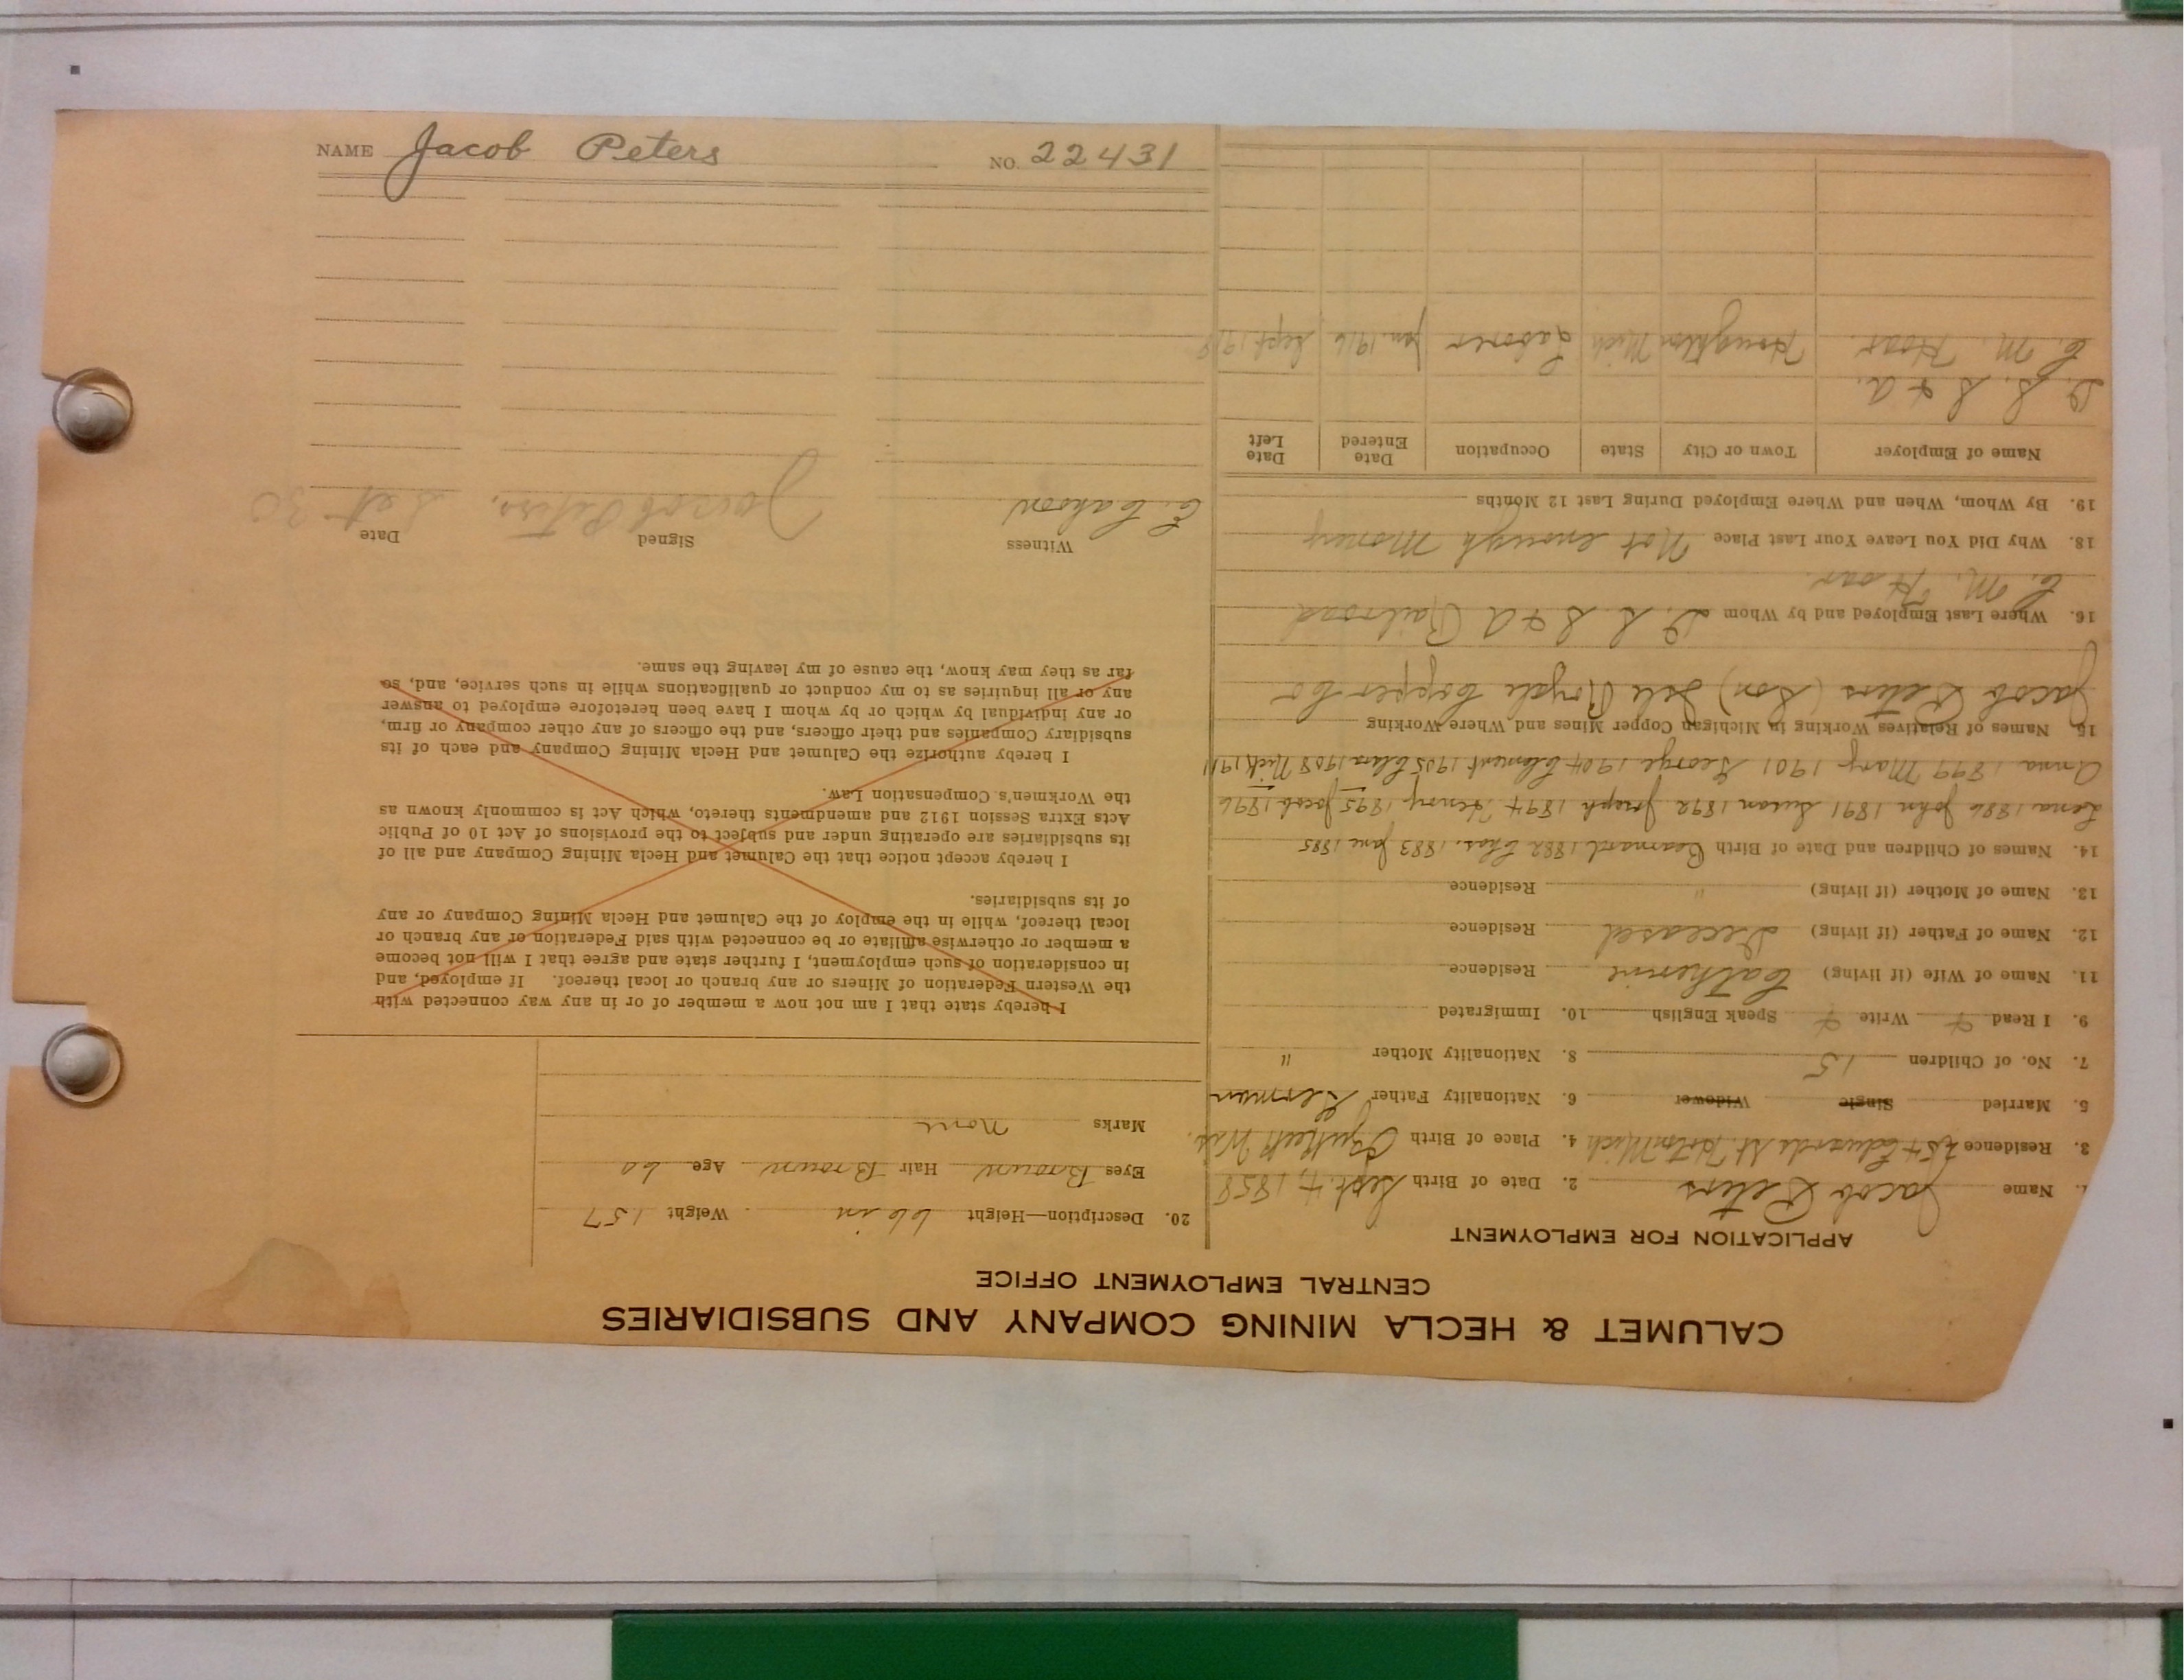 NAME Jacob Peters NO. 22431
CALUMET & HECLA MINING COMPANY AND SUBSIDIARIES
CENTRAL EMPLOYMENT OFFICE
APPLICATION FOR EMPLOYMENT
1. Name Jacob Peters 2. Date of Birth Sept. 4, 1858
3. Residence 254 Edwards St. Hoton Mich 4. Place of Birth Wis.
5. Married Single Widower 6. Nationality Father German
7. No. of Children 15 8. Nationality Mother "
9. I Read Write Speak English 10. Immigrated
11. Name of Wife (if living) Catherine Residence
12. Name of Father (if living) Deceased Residence
13. Name of Mother (if living) " Residence
14. Names of Children and Date of Birth Bearnard 1882 Chas. 1883 Jane 1885
Lena 1886 John 1891 Susan 1892 Joseph 1894 Henry 1895 Jacob 1896
Anna 1899 Mary 1901 George 1904 Clement 1905 Clara 1908 Nick 1911
15. Names of Relatives Working in Michigan Copper Mines and Where Working
Jacob Peters (Son) Isle Royale Copper Co
16. Where Last Employed and by Whom D. S. S & A Railroad
C. M. Hoar.
18. Why Did You Leave Your Last Place Not enough Money
19. By Whom, When and Where Employed During Last 12 Months
Name of Employer Town or City State Occupation Date Entered Date Left
D. S. S & A.
C. M. Hoar. Houghton Mich Laborer Jan. 1916 Sept. 1918
20. Description—Height 66 in Weight 157
Eyes Brown Hair Brown Age 60
Marks None
I hereby state that I am not now a member of or in any way connected with
the Western Federation of Miners or any branch or local thereof. If employed, and
in consideration of such employment, I further state and agree that I will not become
a member or otherwise affiliate or be connected with said Federation or any branch or
local thereof, while in the employ of the Calumet and Hecla Mining Company or any
of its subsidiaries.
I hereby accept notice that the Calumet and Hecla Mining Company and all of
its subsidiaries are operating under and subject to the provisions of Act 10 of Public
Acts Extra Session 1912 and amendments thereto, which Act is commonly known as
the Workmen's Compensation Law.
I hereby authorize the Calumet and Hecla Mining Company and each of its
subsidiary Companies and their officers, and the officers of any other company or firm,
or any individual by which or by whom I have been heretofore employed to answer
any or all inquiries as to my conduct or qualifications while in such service, and, so
far as they may know, the cause of my leaving the same.
Witness Signed Date
Jacob Peters. 30